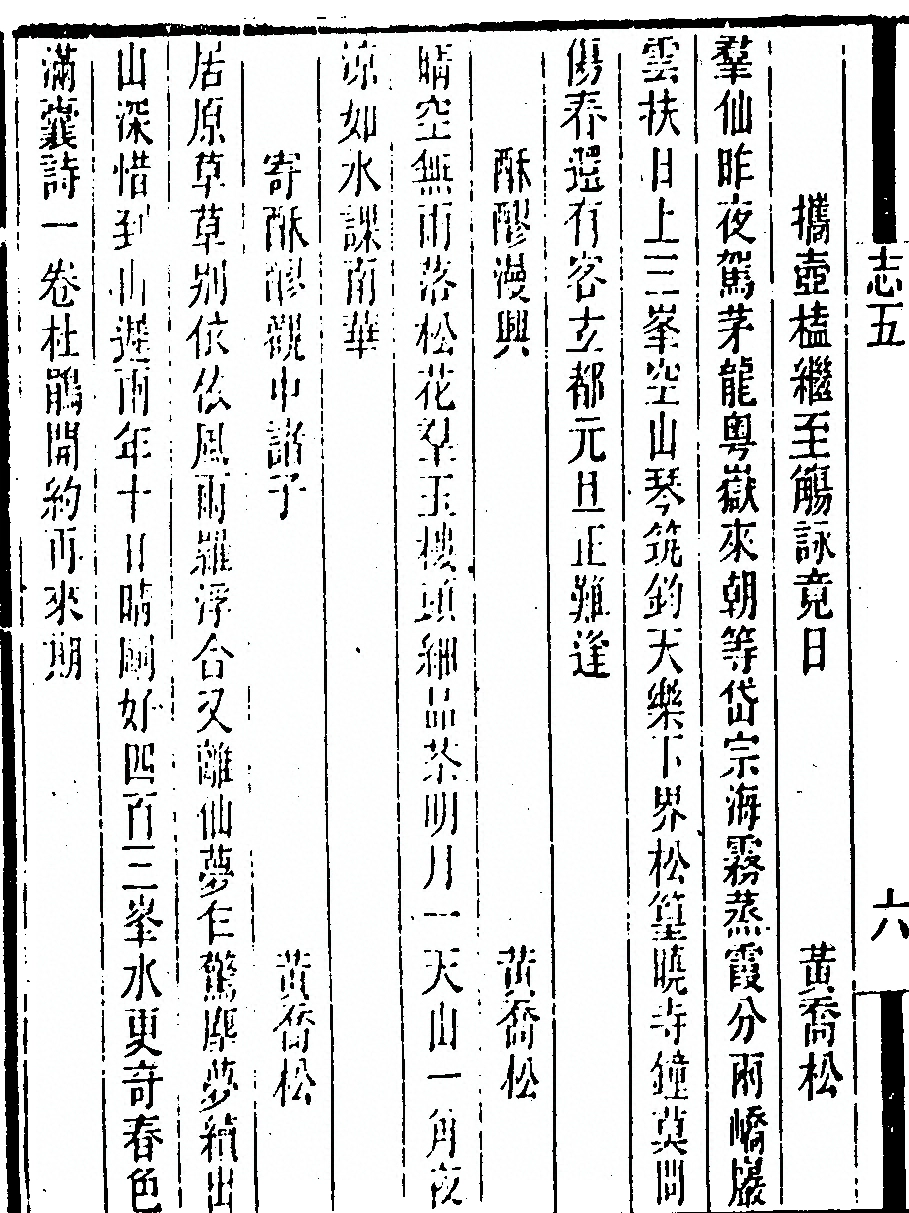 志五
六
攜壺榼繼至觴詠竟日 黃喬松
羣仙昨夜駕茅龍粵嶽來朝等岱宗海霧蒸霞分兩嶠巖
雲扶日上三峯空山琴筑鈞天樂下界松篁曉寺鐘莫問
傷春還有客玄都元旦正難逢
酥醪漫興 黃喬松
晴空無雨落松花羣玉樓頭細品茶明月一天山一角夜
涼如水課南華
寄酥醪觀中諸子 黃喬松
居原草草別依依風雨羅浮合又離仙夢乍驚塵夢續出
山深惜到山遲兩年十日晴剛好四百三峯水更奇春色
滿囊詩一卷杜鵑開約再來期